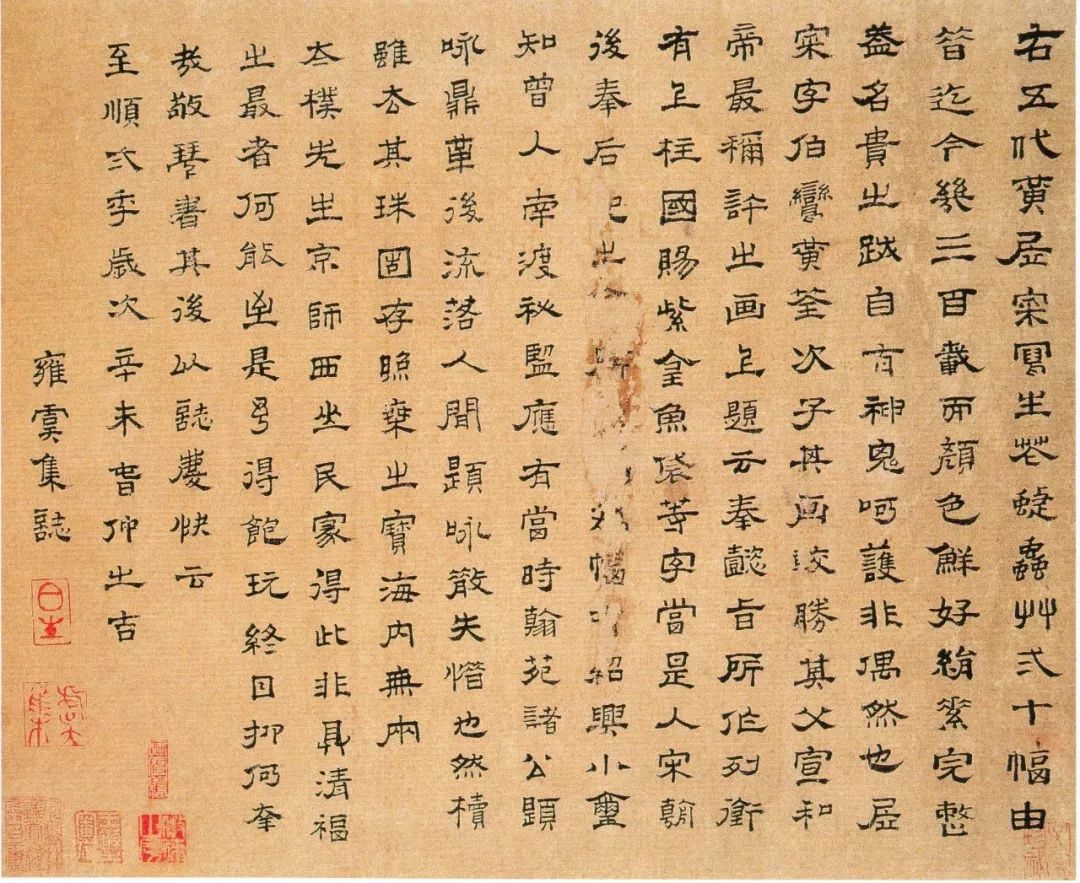 右五代黄居寀寫生花蜨蟲艸弍十幅由
昔迄今幾三百載而顏色鮮好絹素完整
盖名貴之跡自有神鬼呵護非偶然也居
寀字伯鸞黄筌次子其画詨勝其父宣和
帝最稱許之画上題云奉懿旨所作列銜
有上柱國賜紫金魚袋等字當是入宋翰
後奉后妃之 列幅 紹興小璽
知曾入南渡秘監應有當時翰苑諸公題
咏鼎革後流落人間題咏散失惜也然櫝
雖去其珠固存照乘之寶海内無兩
太樸先生京師西山民家得此非具清福
之最者何能至是予得飽玩終日抑何幸
哉敬琴書其後以誌慶快云
至順弍年歲次辛未旾仲之吉
雍虞集誌